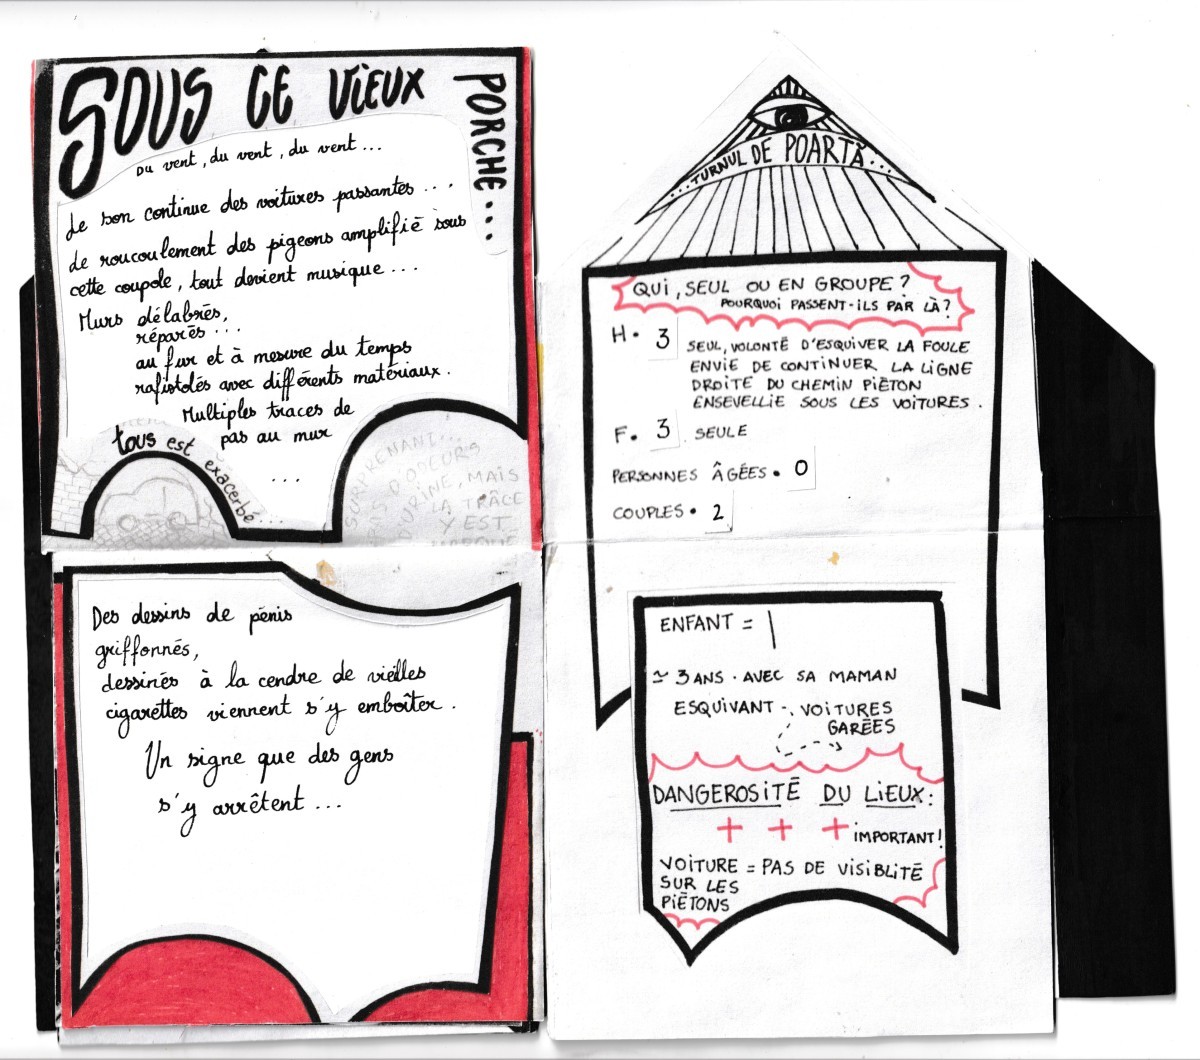 SOUS CE VIEUX
PORCHE...
Du vent, du vent, du vent...
Le son continue des voitures passantes...
de roucoulement des pigeons amplifié sous
cette coupole, tout devient musique...
Murs délabrés,
réparés...
au fur et à mesure du temps
rafistolés avec différents matériaux.
Multiples traces de
pas au mur
...
tous est exacerbé...
SURPRENANT...
PAS D'ODEURS
D'URINE, MAIS
LA TRÂCE
Y EST
MARQUÉE
Des dessins de pénis
griffonnés,
dessinés à la cendre de vielles
cigarettes viennent s'y emboîter.
Un signe que des gens
s'y arrêtent...
..TURNUL DE POARTĂ...
QUI, SEUL OU EN GROUPE?
POURQUOI PASSENT-ILS PAR LÀ?
H• 3
SEUL, VOLONTÉ D'ESQUIVER LA FOULE
ENVIE DE CONTINUER LA LIGNE
DROITE DU CHEMIN PIÉTON
ENSEVELLIE SOUS LES VOITURES.
F. 3 SEULE
PERSONNES ÂGÉES• 0
COUPLES• 2
ENFANT = |
≃ 3 ANS. AVEC SA MAMAN
ESQUIVANT VOITURES
GARÉES
DANGEROSITÉ DU LIEUX:
+ + + IMPORTANT!
VOITURE = PAS DE VISIBLITÉ
SUR LES
PIÉTONS